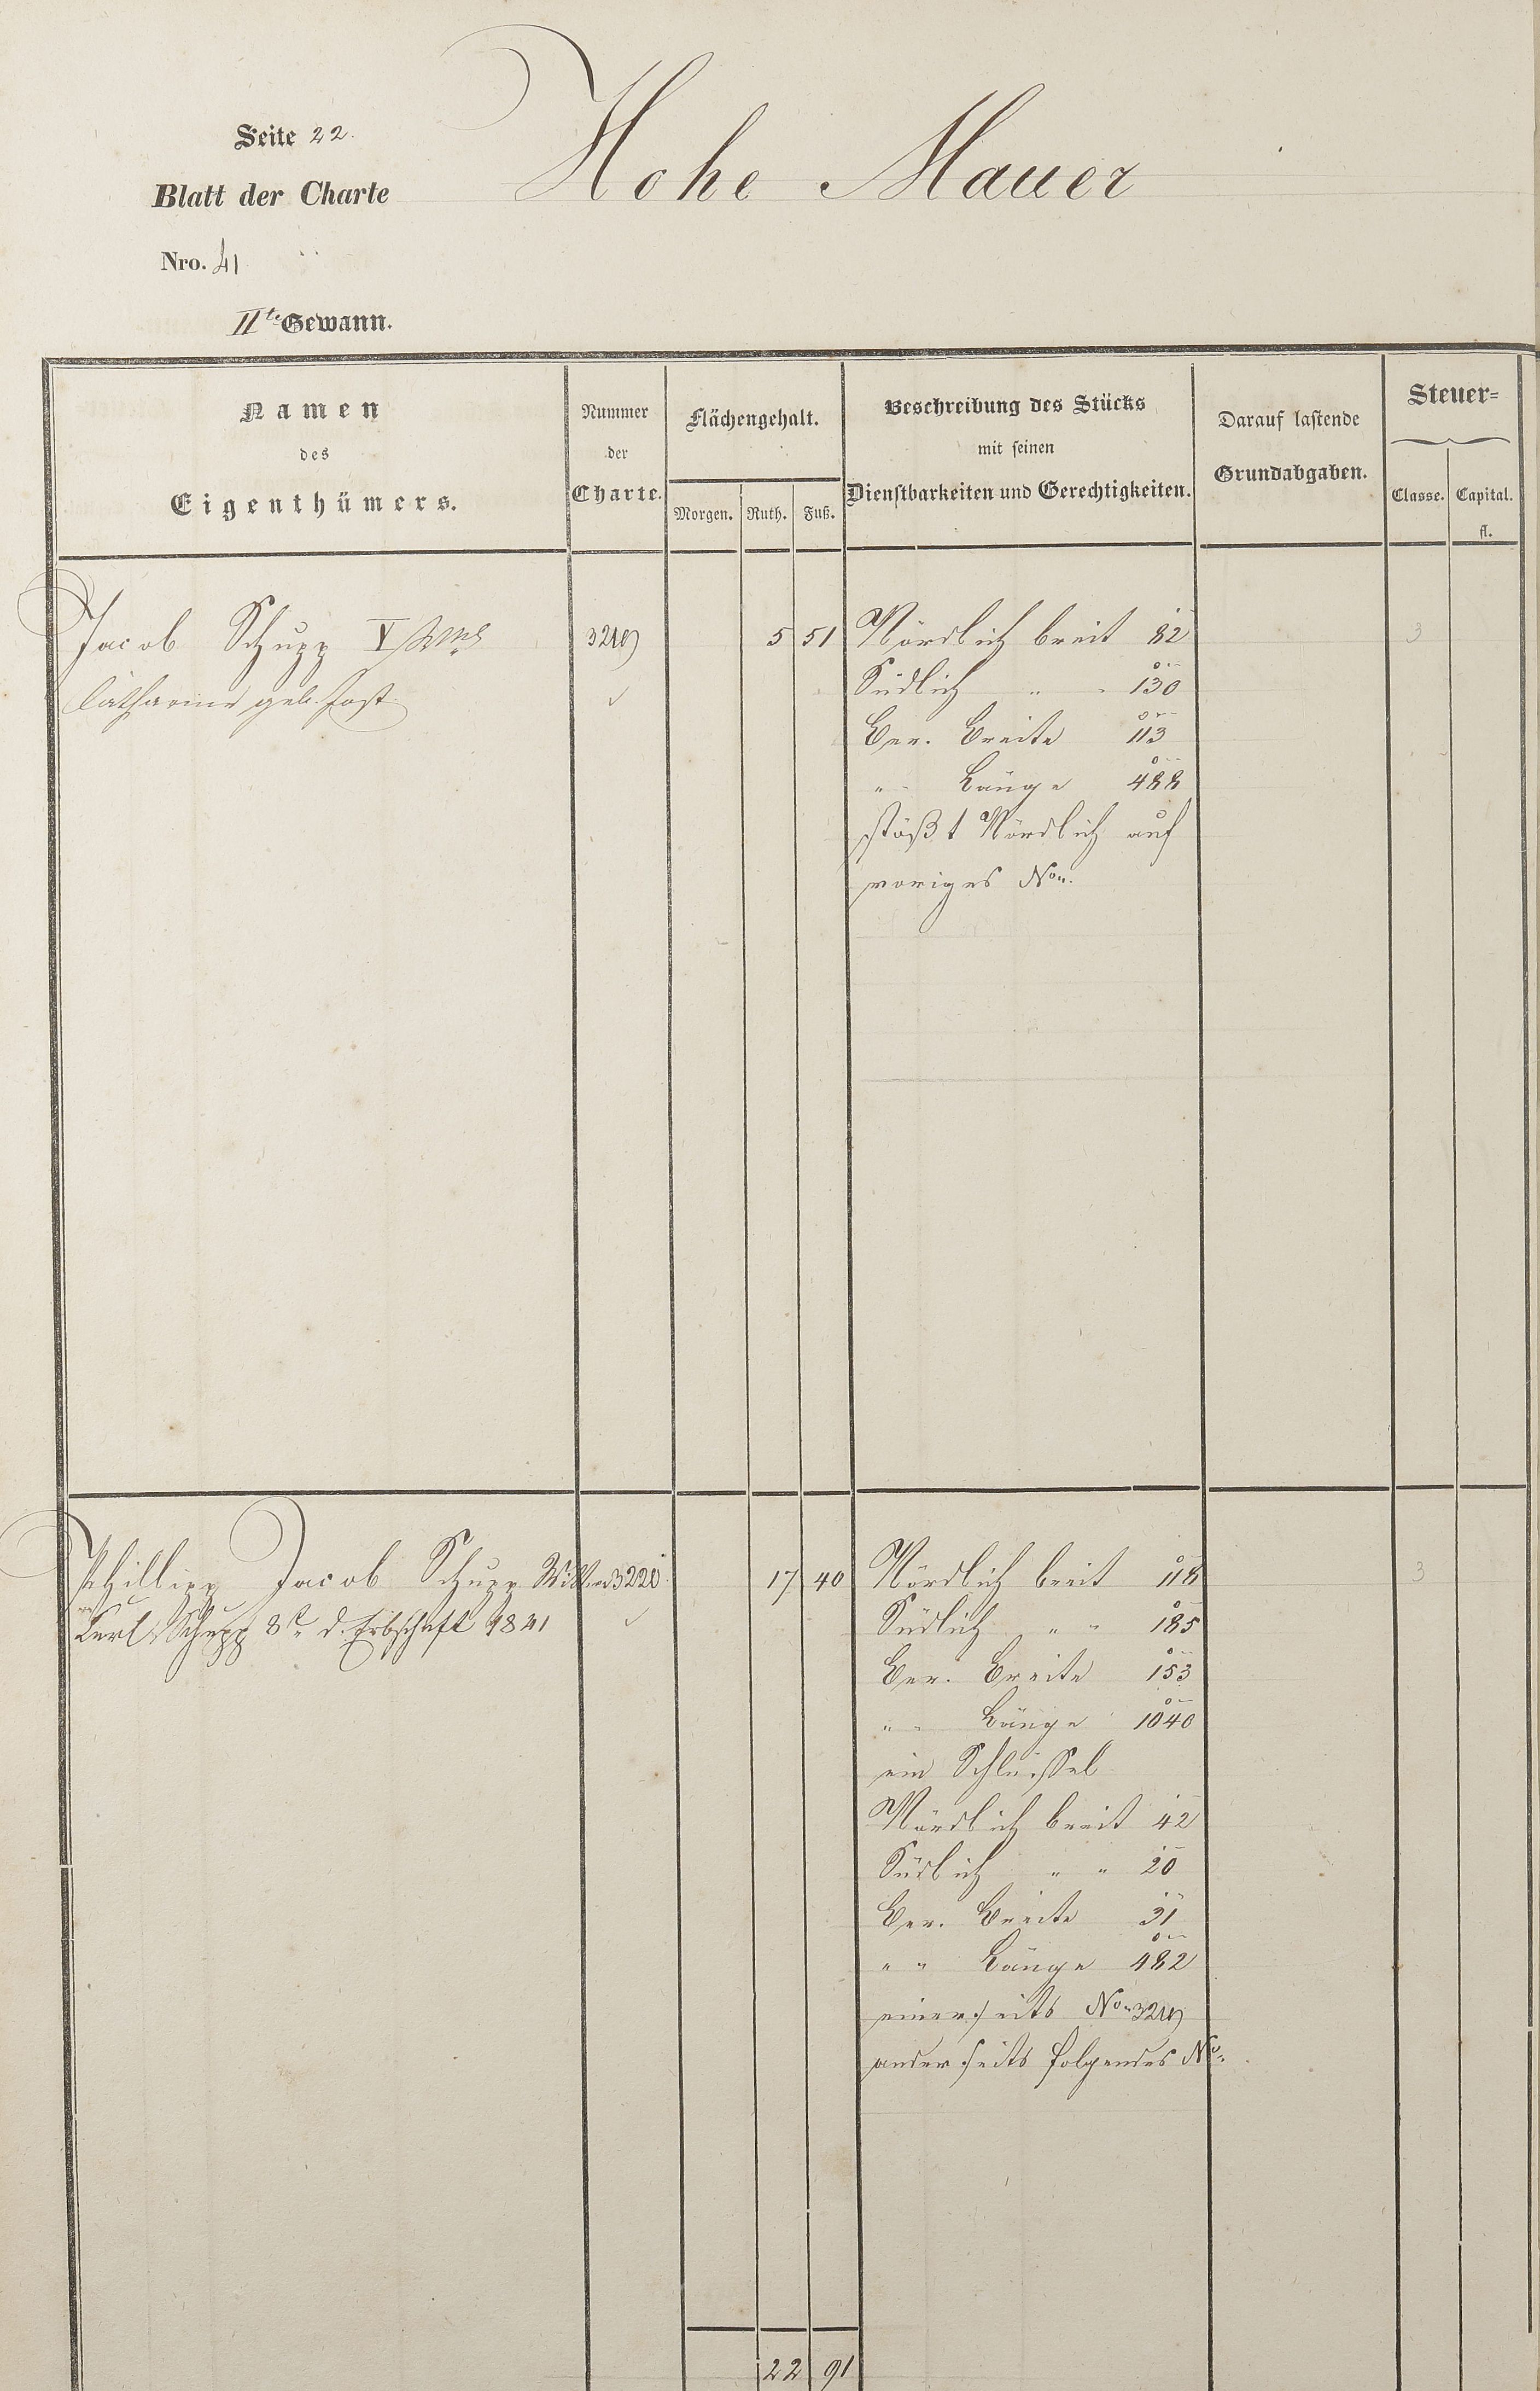 Seite 22.
Hohe Mauer
Blatt der Charte
Nro. 41
IIte Gewann.
Namen
des
Eigenthümers.
Nummer
der
Charte.
Flächengehalt.
Morgen. Ruth. Fuß.
Beschreibung des Stücks
mit seinen
Dienstbarkeiten und Gerechtigkeiten.
Darauf lastende
Grundabgaben.
Steuer=
Classe. Capital.
fl.
Jacob Schupp V 3219 5 51 Nördlich breit 82 3
Catharine geb. Jost
Südlich " " 130
Ber. Breite 113
" " Länge 488
stößt Nördlich auf
voriges No.
Phillipp Jacob Schupp 3220 17 40 Nördlich breit 118 3
Karl Schupp 8t d. Erbschaft 1841
Südlich " " 185
Ber. Breite 153
" " Länge 1040
ein Schlüssel
Nördlich breit 42
Südlich " " 20
Ber. Breite 31
" " Länge 482
einerseits No. 3219
anderseits folgendes No.
22 91